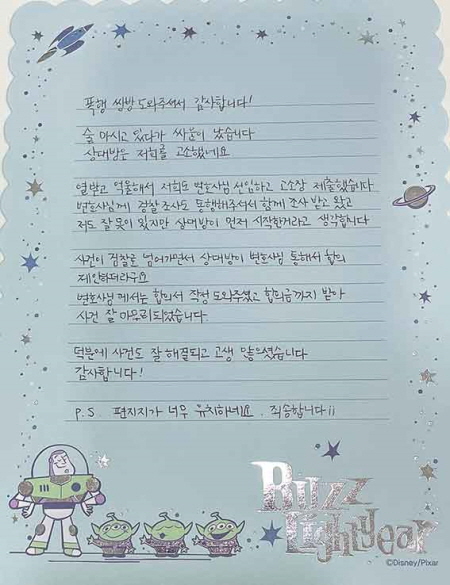 폭행 쌍방 도와주셔서 감사합니다!
술 마시고 있다가 싸움이 났습니다
상대방은 저희를 고소했네요
열받고 억울해서 저희도 변호사님 선임하고 고소장 제출했습니다
변호사님께 경찰조사도 동행해주셔서 함께 조사 받고 왔고
저도 잘못이 있지만 상대방이 먼저 시작한거라고 생각합니다
사건이 검찰로 넘어가면서 상대방이 변호사님 통해서 합의
제안하더라구요
변호사님께서는 합의서 작성 도와주셨고 합의금까지 받아
사건 잘 마무리되었습니다
덕분에 사건도 잘 해결되고 고생 많으셨습니다
감사합니다!
P.S. 편지지가 너무 유치하네요. 죄송합니다ii
Buzz
Lightyear
©Disney/Pixar